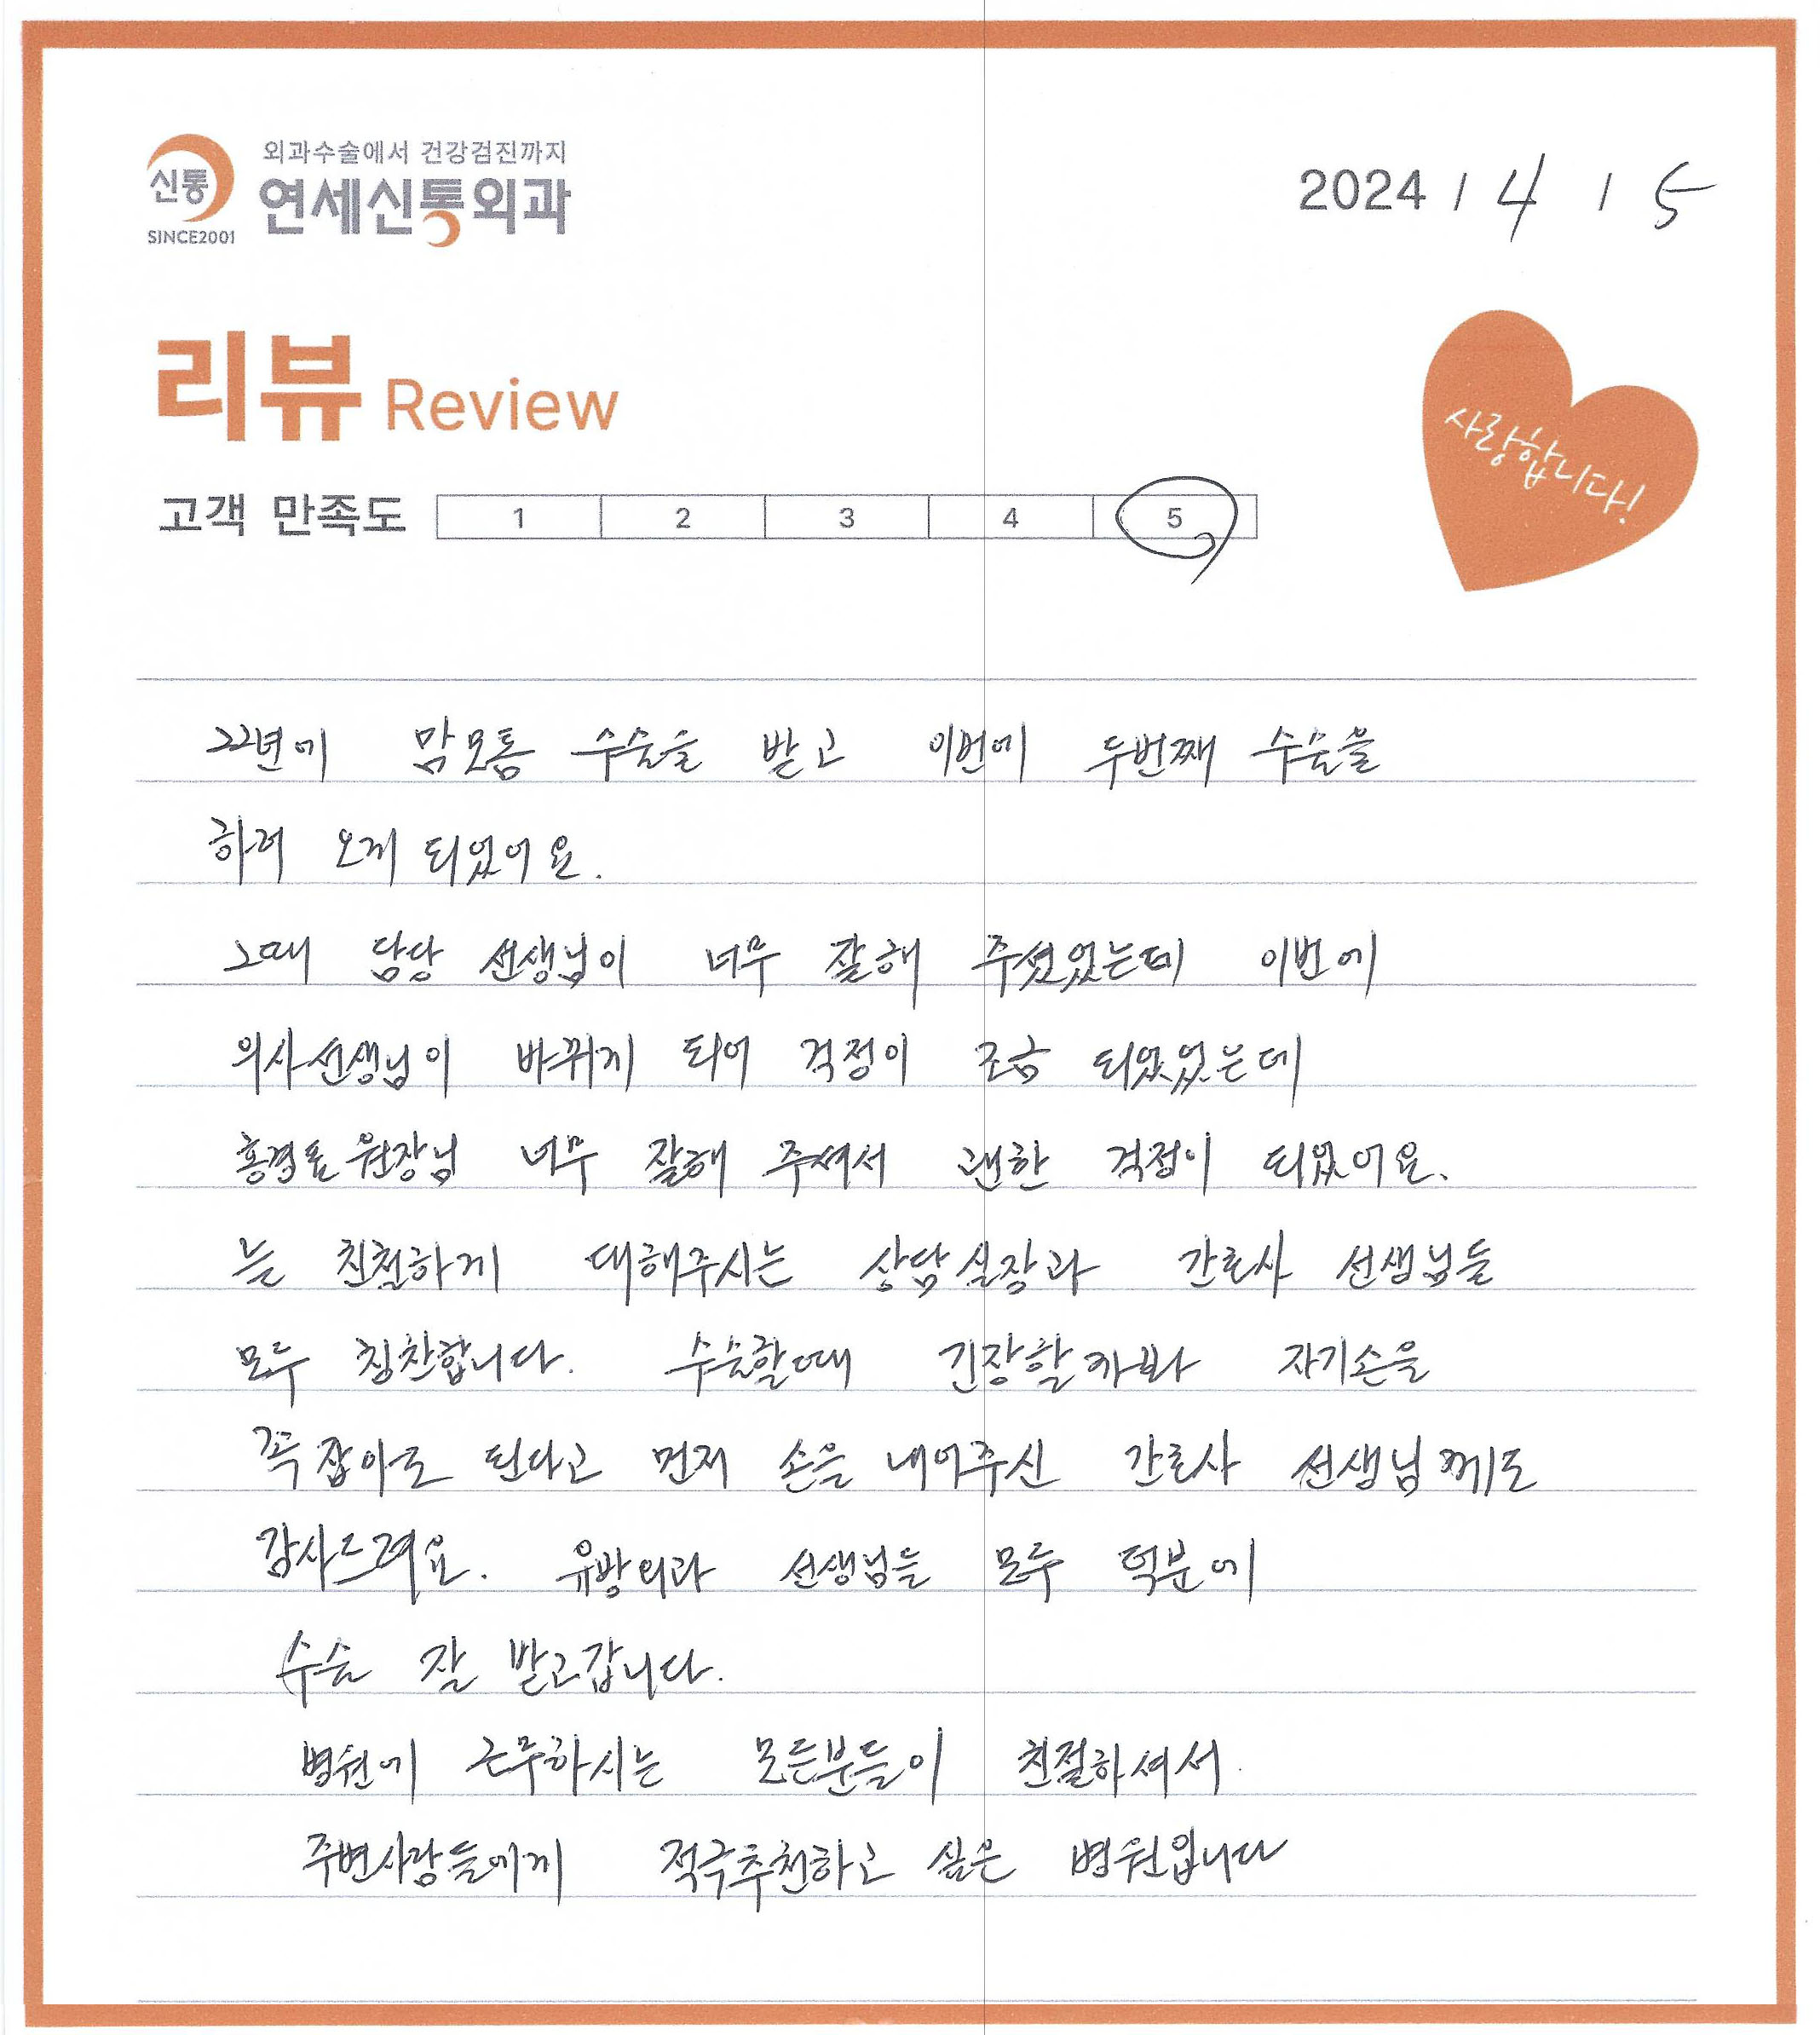 신통
SINCE2001
외과수술에서 건강검진까지
연세신통외과
2024 / 4 / 5
리뷰 Review
사랑합니다!
고객 만족도 1 2 3 4 5
22년에 맘모톰 수술을 받고 이번에 두번째 수술을
하러 오게 되었어요.
그때 담당 선생님이 너무 잘해 주셨었는데 이번에
의사선생님이 바뀌게 되어 걱정이 조금 되었었는데
원장님 너무 잘해 주셔서 괜한 걱정이 되었어요.
늘 친절하게 대해주시는 상담실장과 간호사 선생님들
모두 칭찬합니다. 수술할때 긴장할까봐 자기손을
꼭 잡아도 된다고 먼저 손을 내어주신 간호사 선생님께도
감사드려요. 유방외과 선생님들 모두 덕분에
수술 잘 받고갑니다.
병원에 근무하시는 모든분들이 친절하셔서
주변사람들에게 적극추천하고 싶은 병원입니다